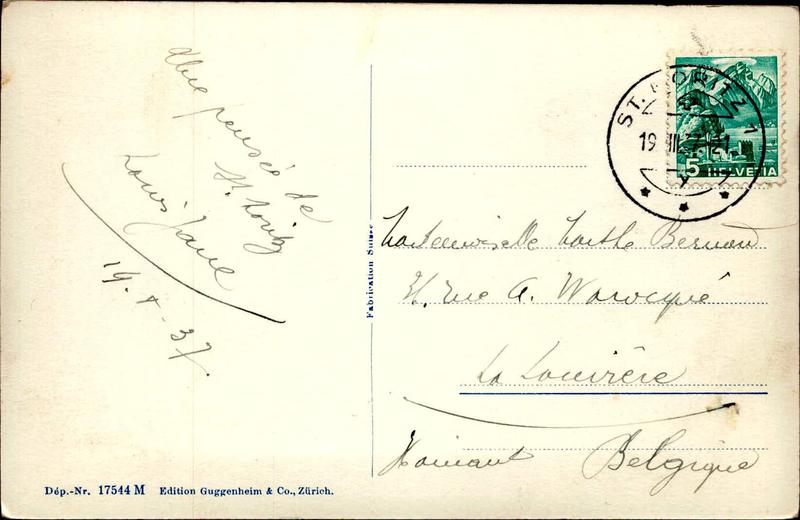 Une pensée de
St. Moritz
Louis Jane
19. 8 - 37.
Fabrication Suisse
ST. MORITZ 1
19 VIII 37 - 21
5 HELVETIA
Mademoiselle Marthe Bernard
Rue A. Warocqué
La Louvière
Hainaut Belgique
Dép.-Nr. 17544 M Edition Guggenheim & Co., Zürich.